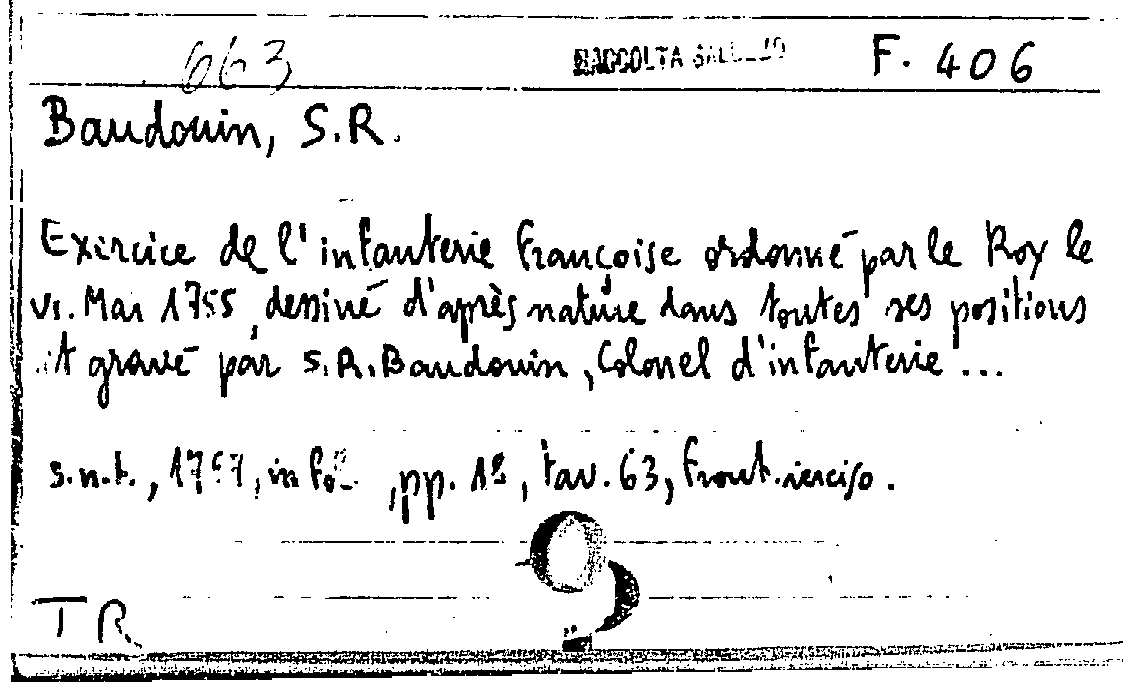 663 RACCOLTA SALUZZO F. 406
Baudouin, S.R.
Exercice de l'infanterie françoise ordonné par le Roy le
VI. Mai 1755, dessiné d'après nature dans toutes ses positions
et gravé par S.R. Baudouin, Colonel d'infanterie...
s.n.t., 1757, in fol., pp. 18, tav. 63, front. inciso.
T R.